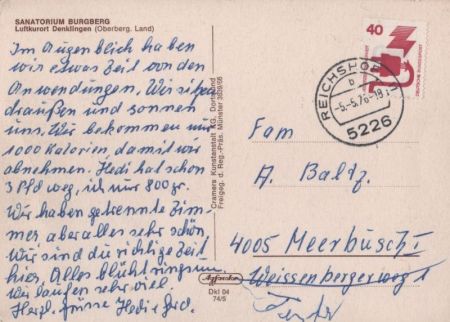 SANATORIUM BURGBERG
Luftkurort Denklingen (Oberberg. Land)
Im Augenblick haben
wir etwas Zeit von den
Anwendungen. Wir sitzen
draußen und sonnen
uns. Wir bekommen nur
1000 Kalorien, damit wir
abnehmen. Hedi hat schon
3 Pfd weg, ich nur 800 gr.
Wir haben getrennte Zim-
mer aber alles sehr schön.
Wir sind die richtige Zeit
hier. Alles blüht ringsum.
Wir laufen sehr viel.
Herzl. Grüsse Hedi +
Cramers Kunstanstalt KG, Dortmund
Freigeg. d. Reg.-Präs. Münster
Dkl 04
74/5
40
DEUTSCHE BUNDESPOST
REICHSHOF
b
-5.-5.76-18
5226
Fam
A. Baltz.
4005 Meerbusch I
Weissenbergerweg 1